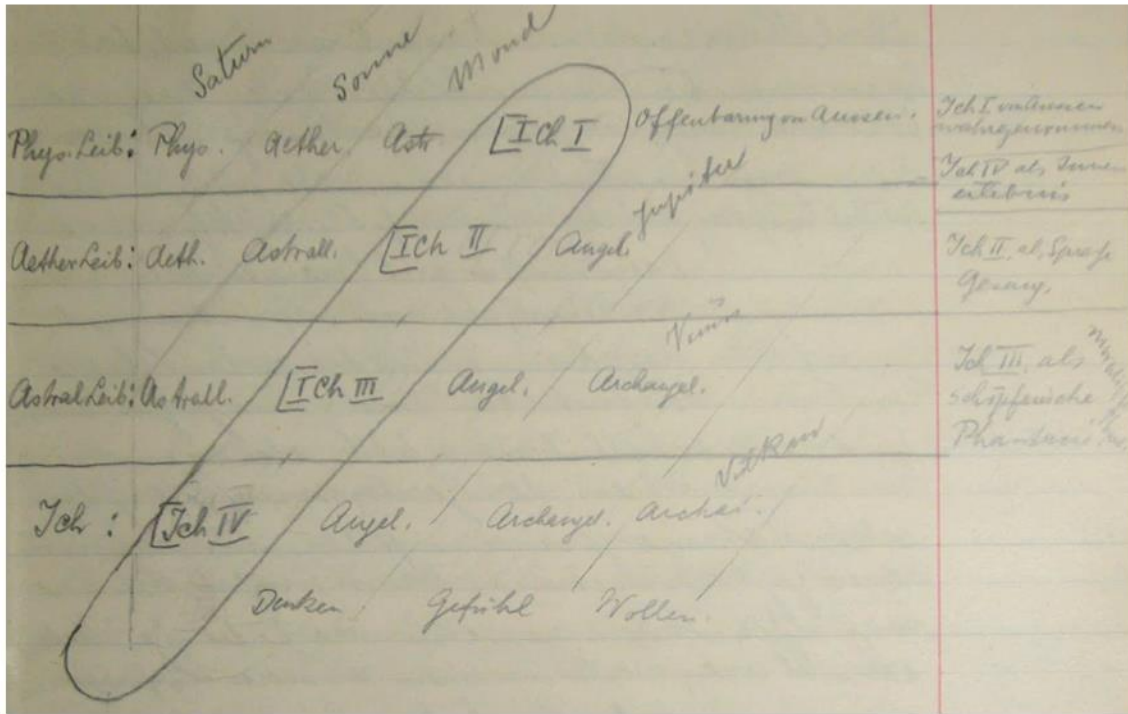 Saturn
Sonne
Mond
Phys. Leib: Phys. Aether. Astr. [Ich I Offenbarung von Aussen.
Jupiter
AetherLeib: Aeth. Astrall. [Ich II Angel.
Venus
AstralLeib: Astrall. [Ich III Angel. Archangel.
Vulkan
Ich: [Ich IV Angel. Archangel. Archai.
Denken. Gefühl Wollen.
Ich I von Aussen
wahrgenommen
Ich IV als Innen
erlebnis
Ich II als Sprache
Gesang.
Ich III als
schöpferische
Phantasie